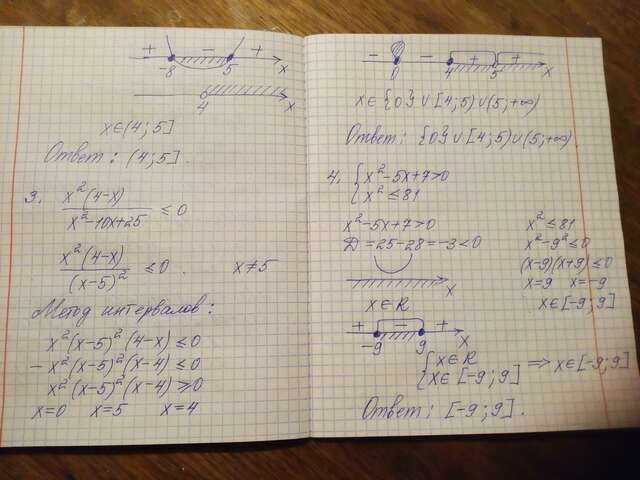 + − +
-8 5 x
4 x
x∈(4;5]
Ответ: (4;5].
3. x²(4-x)/x²-10x+25 ≤0
x²(4-x)/(x-5)² ≤0. x≠5
Метод интервалов:
x²(x-5)²(4-x)≤0
-x²(x-5)²(x-4)≤0
x²(x-5)²(x-4)≥0
x=0 x=5 x=4
− − + +
0 4 5 x
x∈{0}∪[4;5)∪(5;+∞)
Ответ: {0}∪[4;5)∪(5;+∞).
4. {x²-5x+7>0
x²≤81
x²-5x+7>0 x²≤81
D=25-28=-3<0 x²-9²≤0
(x-9)(x+9)≤0
x x=9 x=-9
x∈R x∈[-9;9]
+ − +
-9 9 x
{x∈R
x∈[-9;9] ⇒ x∈[-9;9]
Ответ: [-9;9].